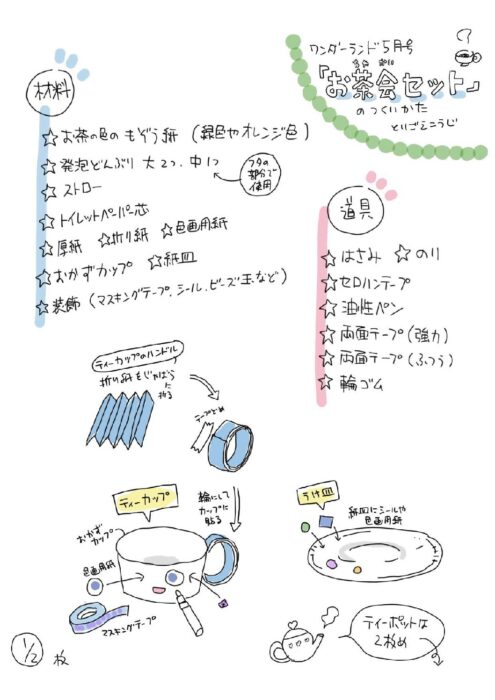 ワンダーランド5月号
「お茶会セット」
のつくりかた
とりごえこうじ
材料
☆お茶の色のもぞう紙 (緑色やオレンジ色)
☆発泡どんぶり 大2つ、中1つ
フタの部分で使用
☆ストロー
☆トイレットペーパー芯
☆厚紙 ☆折り紙 ☆色画用紙
☆おかずカップ ☆紙皿
☆装飾 (マスキングテープ、シール、ビーズ玉など)
道具
☆はさみ ☆のり
☆セロハンテープ
☆油性ペン
☆両面テープ(強力)
☆両面テープ(ふつう)
☆輪ゴム
ティーカップのハンドル
折り紙をじゃばら
に折る
テープどめ
輪にして
カップに
貼る
ティーカップ
おかず
カップ
色画用紙
マスキングテープ
うけ皿
紙皿にシールや
色画用紙
ティーポットは
2枚め
1/2枚